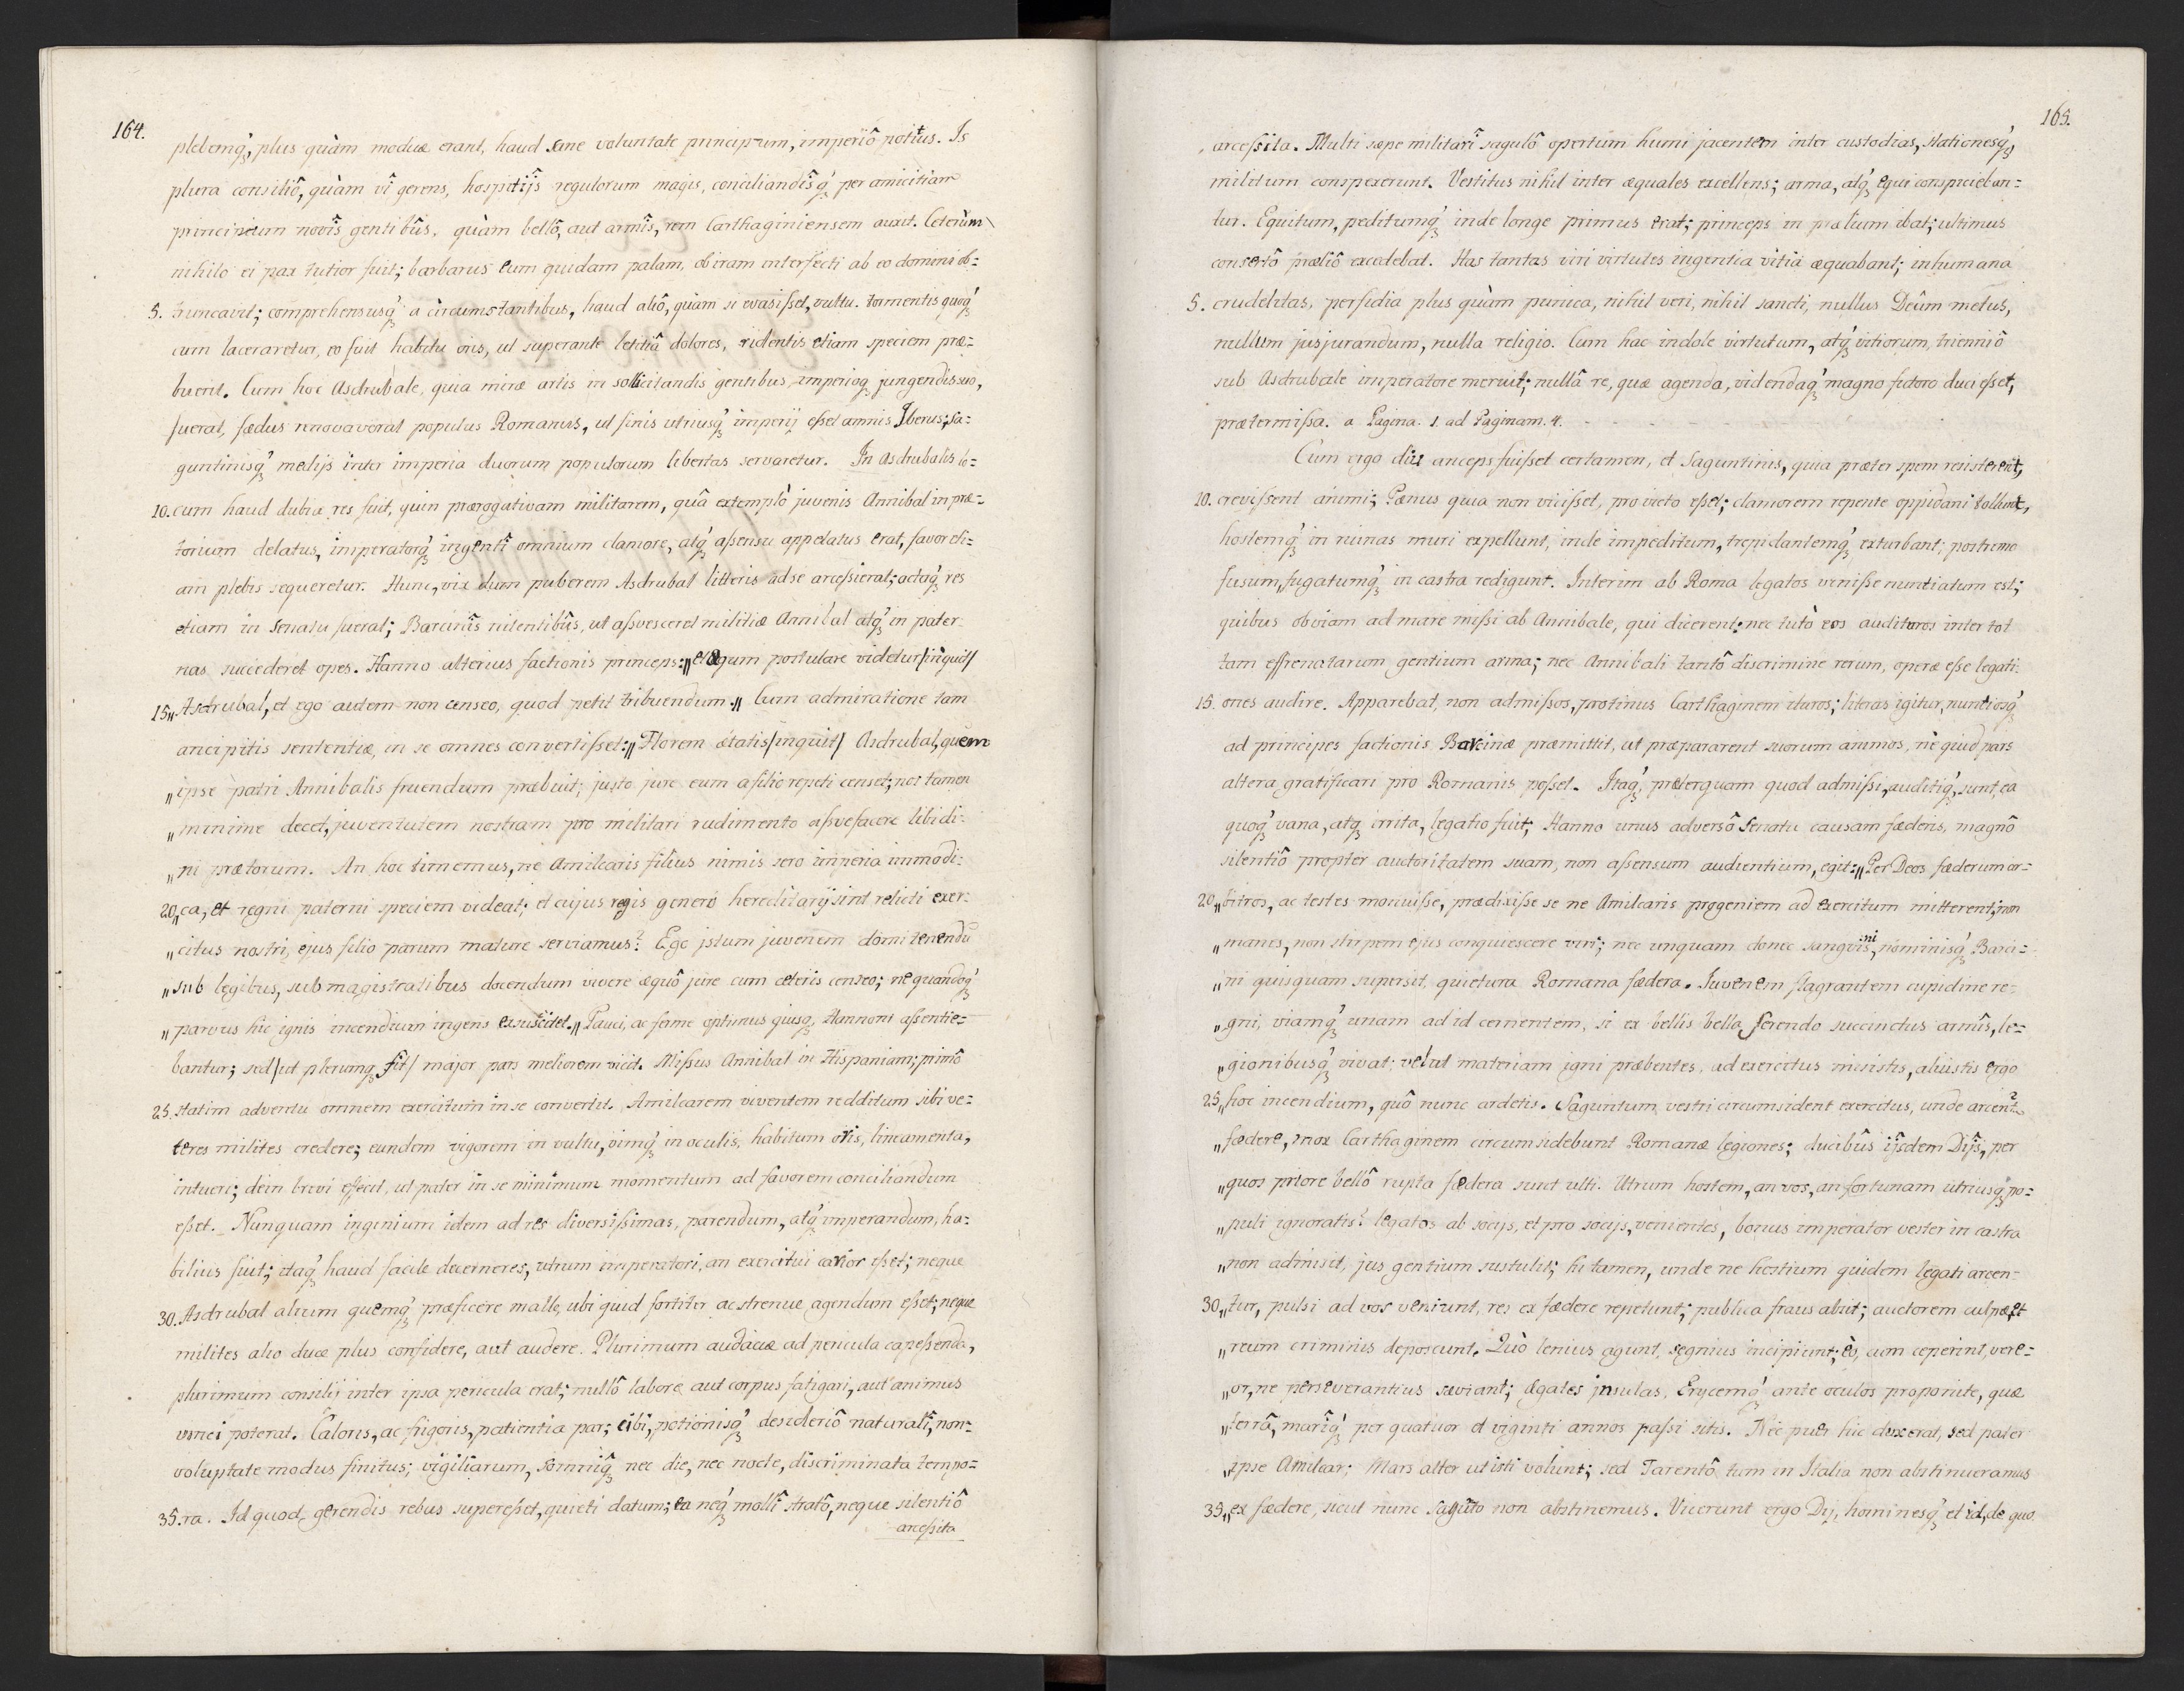 164.
plebemq́ꝫ, plus quàm modicæ erant, haud sane voluntate principum, imperiô potitus. Is
plura consiliô, quàm vî gerens, hospitijs regulorum magis, conciliandîsq́ꝫ per amicitiam
principum novîs gentibûs, quàm bellô, aut armîs, rem Carthaginiensem auxit. Ceterùm
nihilo ei pax tutior fuit; barbarus eum quidam palam, ob iram interfecti ab eo domini ob=
5. truncavit; comprehensusq́ꝫ a circumstantibus, haud aliô, quàm si evasisset, vultu. tormentis quoq́ꝫ
cum laceraretur, eo fuit habitu oris, ut superante letitiâ dolores, ridentis etiam speciem præ=
buerit. Cum hoc Asdrubale, quia miræ artis in sollicitandis gentibus, imperioqꝫ jungendis suo,
fuerat, fædus renovaverat populus Romanus, ut finis utriusq́ꝫ imperij esset amnis Iberus; Sa=
guntinisq́ꝫ medijs inter imperia duorum populorum libertas servaretur. In Asdrubalis lo=
10. cum haud dubia res fuit, quin prærogativam militarem, quâ extemplò juvenis Annibal in præ=
torium delatus, imperatorq́ꝫ ingentî omnium clamore, atq́ꝫ assensu appelatus erat, favor eti=
am plebis sequeretur. Hunc, vix dum puberem Asdrubal litteris ad se arcessierat; actaq́ꝫ res
etiam in Senatu fuerat; Barcinîs nitentibûs, ut assvesceret militiæ Annibal atq́ꝫ in pater=
nas succederet opes. Hanno alterius factionis princeps: „et æqum postulare videtur /inquit/
15 „ Asdrubal, et ego autem non censeo, quod petit tribuendum. „ Cum admiratione tam
ancipitis sententiæ, in se omnes convertisset: „ Florem ætatis /inquit/ Asdrubal, quem
„ ipse patri Annibalis fruendum præbuit; justo jure eum a filio repeti censet; nos tamen
„ minime decet, juventutem nostram pro militari rudimento assvefacere libidi=
„ ni prætorum. An hoc timemus, ne Amilcaris filius nimis sero imperia immodi=
20 „ ca, et regni paterni speciem videat; et cujus regis generô hereditarij sint relicti exer=
„ citus nostri, ejus filio parum mature serviamus? Ego istum juvenem domi tenendũ
„ sub legibus, sub magistratibus docendum vivere æquô jure cum ceteris censeo; ne quandoq́ꝫ
„ parvus hic ignis incendium ingens exuscitet. „ Pauci, ac ferme optimus quisqꝫ, Hannoni assentie=
bantur; sed /ut plerumqꝫ fit/ major pars meliorem vicit. Missus Annibal in Hispaniam; primô
25. statim adventu omnem exercitum in se convertit. Amilcarem viventem redditum sibi ve=
teres milites credere; eundem vigorem in vultu, vimq́ꝫ in oculis, habitum oris, lineamenta,
intueri; dein brevi effecit, ut pater in se minimum momentum ad favorem conciliandum
esset. Nunquam ingenium idem ad res diversissimas, parendum, atq́ꝫ imperandum, ha=
bilius fuit; itaq́ꝫ haud facile decerneres, utrum imperatori, an exercitui carior esset; neque
30. Asdrubal alium quemq́ꝫ præficere malle, ubi quid fortiter ac strenue agendum esset; neque
milites alio duce plus confidere, aut audere. Plurimum audaciæ ad pericula capessenda,
plurimum consilii inter ipsa pericula erat; nullô labore aut corpus fatigari, aut animus
vinci poterat. Caloris, ac frigoris, patientia par; cibi, potionisq́ꝫ desideriô naturalî, non=
voluptate modus finitus; vigiliarum, somniq́ꝫ nec die, nec nocte, discriminata tempo=
35. ra. Id quod gerendis rebus superesset, quieti datum; ea neq́ꝫ mollî stratô, neque silentiô
arcessita
165.
arcessita. Multi sæpe militarî sagulô opertum humi jacentem inter custodias, stationesq́ꝫ,
militum conspexerunt. Vestitus nihil inter æquales excellens; arma, atq́ꝫ equi conspicieban=
tur. Equitum, peditumq́ꝫ inde longe primus erat; princeps in prælium ibat; ultimus
consertô præliô excedebat. Has tantas viri virtutes ingentia vitia æquabant; inhumana
5. crudelitas, perfidia plus quàm punica, nihil veri, nihil sancti, nullus Deûm metus,
nullum jusjurandum, nulla religio. Cum hac indole virtutum, atq́ꝫ vitiorum, trienniô
sub Asdrubale imperatore meruit; nullâ re, quæ agenda, videndaq́ꝫ magno futoro duci esset,
prætermissa. a Pagina. 1. ad Paginam. 4.
Cum ergo diu anceps fuisset certamen, et Saguntinis, quia præter spem resisterent,
10. crevissent animi; Pænus quia non vicisset, pro victo esset; clamorem repente oppidani tollunt,
hostemq́ꝫ in ruinas muri expellunt, inde impeditum, trepidantemq́ꝫ exturbant; postremo
fusum, fugatumq́ꝫ in castra redigunt. Interim ab Roma legatos venisse nuntiatum est;
quibus obviam ad mare missi ab Annibale, qui dicerent: nec tutò eos audituros inter tot
tam effrenatarum gentium arma; nec Annibali tantô discrimine rerum, operæ esse legati=
15. ones audire. Apparebat, non admissos, protinus Carthaginem ituros; literas igitur, nuntiosq́ꝫ
ad principes factionis Barcinæ præmittit, ut præpararent suorum animos, ne quid pars
altera gratificari pro Romanis posset. Itaq́ꝫ, præterquam quod admissi, auditiq́ꝫ, sunt, ea
quoq́ꝫ vana, atqꝫ irrita, legatio fuit; Hanno unus adversô Senatu causam fæderis, magnô
silentiô propter auctoritatem suam, non assensum audientium, egit: „ Per Deos fæderum ar=
20 „ bitros, ac testes monuisse, prædixisse se ne Amilcaris progeniem ad exercitum mitterent; non
„ manes, non stirpem ejus conquiescere viri; nec unquam donec sangvinis, nominisq́ꝫ Barci=
„ ni quisquam supersit, quietura Romana fædera. Iuvenem flagrantem cupidine re=
„ gni, viamq́ꝫ unam ad id cernentem, si ex bellis bella serendo succinctus armîs, le=
„ gionibusq́ꝫ vivat; velut materiam igni præbentes, ad exercitus misistis, aluistis ergo
25 „ hoc incendium, quô nunc ardetis. Saguntum vestri circumsident exercitus, unde arcent2
„ fædere, mox Carthaginem circumsidebunt Romanæ legiones; ducibûs ijsdem Dijs, per
„ quos priore bellô rupta fædera sunt ulti. Utrum hostem, an vos, an fortunam utriusq́ꝫ po=
„ puli ignoratis? legatos ab socijs, et pro socijs, venientes, bonus imperator vester in castra
„ non admisit, jus gentium sustulit; hi tamen, unde ne hostium quidem legati arcen=
30 „ tur, pulsi ad vos veniunt, res ex fædere repetunt; publica fraus absit; auctorem culpæ, et
„ reum criminis deposcunt. Quò lenius agunt, segnius incipiunt; eò, cum ceperint, vere=
„ or, ne perseverantius sæviant; ægates insulas, Erycemq́ꝫ ante oculos proponite, quæ
„ terrâ, marîq́ꝫ per quatuor et viginti annos passi sitis. Nec puer hic dux erat, sed pater
„ ipse Amilcar; Mars alter ut isti volunt; sed Tarentô tum in Italia non abstinueramus
35 „ ex fædere, sicut nunc Sagũto non abstinemus. Vicerunt ergo Dij, hominesq́ꝫ et id, de quo